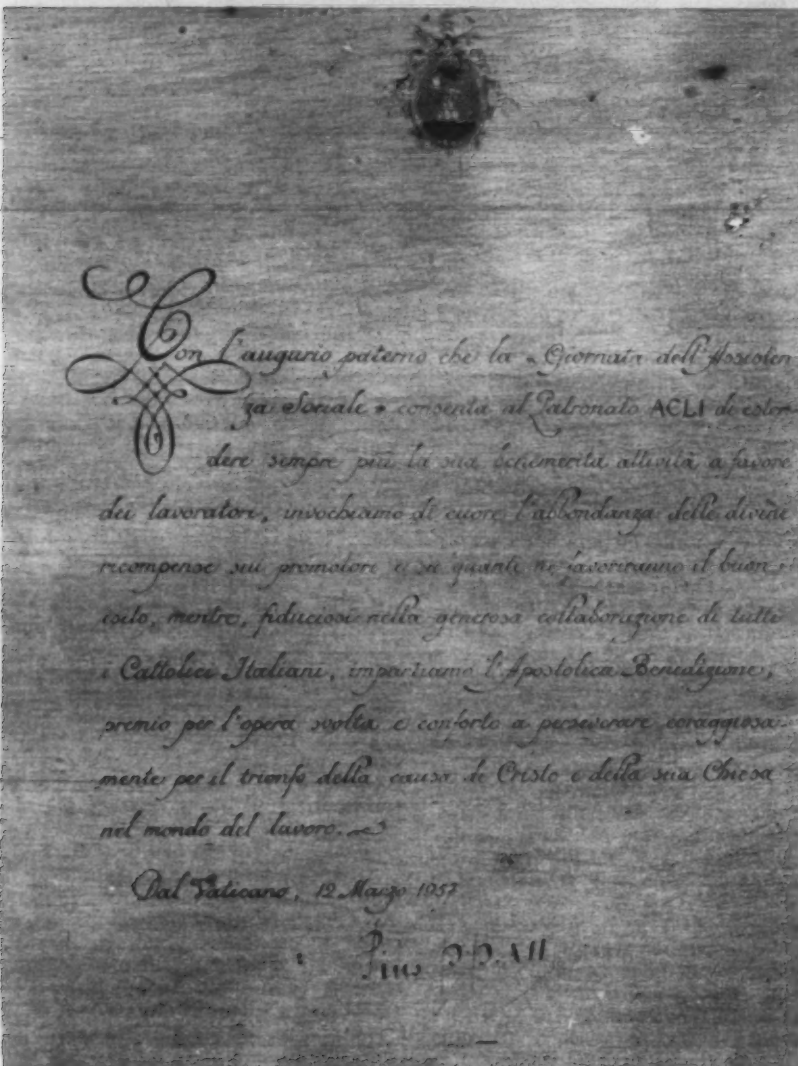 Con l'augurio paterno che la « Giornata dell'Assisten
za Sociale » consenta al Patronato ACLI di esten
dere sempre più la sua benemerita attività a favore
dei lavoratori, invochiamo di cuore l'abbondanza delle divine
ricompense sui promotori e su quanti ne favoriranno il buon
esito, mentre, fiduciosi nella generosa collaborazione di tutti
i Cattolici Italiani, impartiamo l'Apostolica Benedizione,
premio per l'opera svolta e conforto a perseverare coraggiosa
mente per il trionfo della causa di Cristo e della sua Chiesa
nel mondo del lavoro.
Dal Vaticano, 12 Marzo 1957
Pius PP. XII